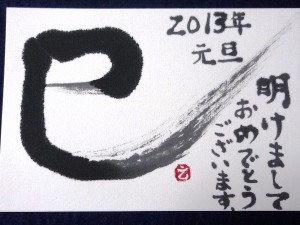 巳
2013年
元旦
明けまして
おめでとう
ございます。